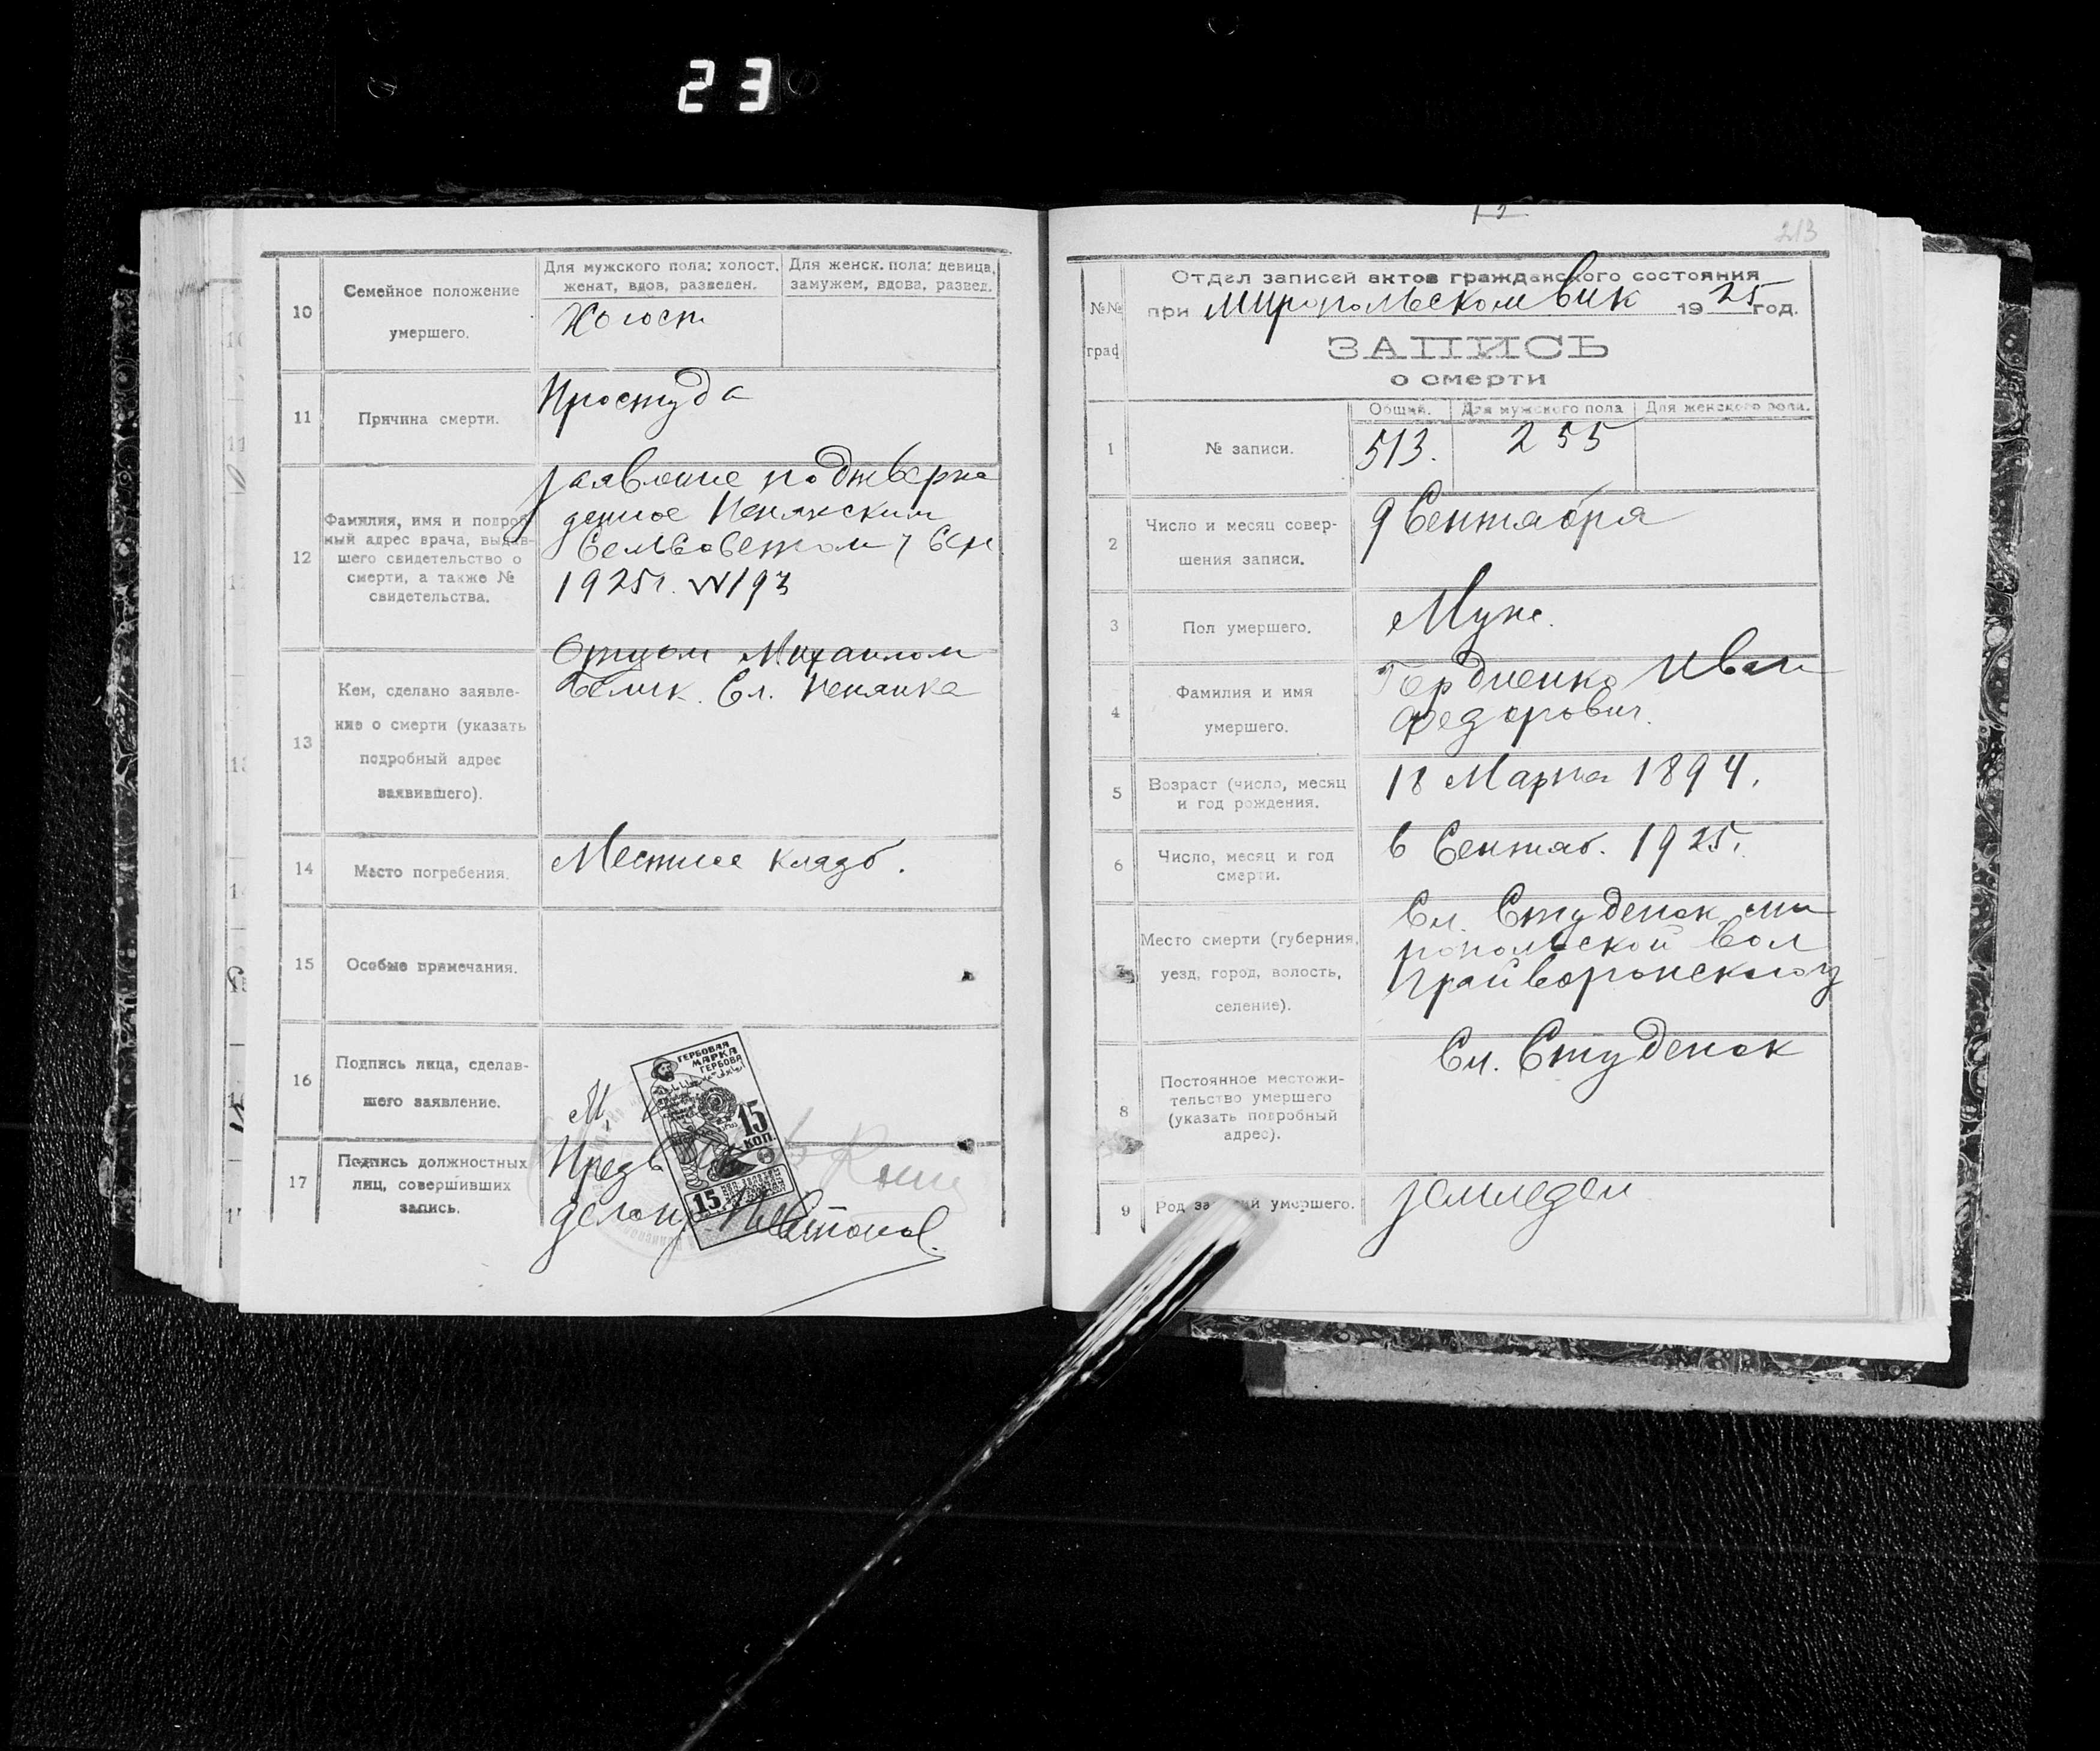 23
10
Семейное положение
умершего.
Для мужского пола: холост,
женат, вдов, разведен.
Для женск. пола: девица,
замужем, вдова, развед.
Холост
11
Причина смерти.
Простуда
12
Фамилия, имя и подроб-
ный адрес врача, выдав-
шего свидетельство о
смерти, а также №
свидетельства.
заявление подтверж
денное Пенянским
Сельсоветом 7 Сен
1925г. №193
13
Кем, сделано заявле-
ние о смерти (указать
подробный адрес
заявившего).
Отцом Михаилом
Белик. Сл. Пенянка
14
Место погребения.
Местное кладб.
15
Особые примечания.
16
Подпись лица, сделав-
шего заявление.
М,
17
Подпись должностных
лиц, совершивших
запись.
Пред
делоп
ГЕРБОВАЯ
МАРКА
ГЕРБОВА
15
КОП.
15
213
№№
граф
Отдел записей актов гражданского состояния
при Миропольском Вик 1925 год.
ЗАПИСЬ
о смерти
1
№ записи.
Общий.
Для мужского пола
Для женского пола.
513.
255
2
Число и месяц совер-
шения записи.
9 Сентября
3
Пол умершего.
Муж.
4
Фамилия и имя
умершего.
Гордиенко Иван
Федорович.
5
Возраст (число, месяц
и год рождения.
18 Марта 1894.
6
Число, месяц и год
смерти.
6 Сентяб. 1925г.
7
Место смерти (губерния,
уезд, город, волость,
селение).
Сл. Студенок ми
ропольской Вол
Грайворонского у
8
Постоянное местожи-
тельство умершего
(указать подробный
адрес).
Сл. Студенок
9
Род занятий умершего.
земледел